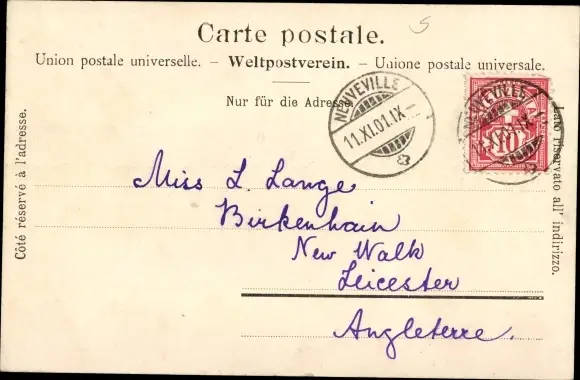 Carte postale.
Union postale universelle. – Weltpostverein. – Unione postale universale.
Nur für die Adresse
NEUVEVILLE
11.XI.01.IX–
NEUVEVILLE
10
Côté réservé à l'adresse.
Lato riservato all' indirizzo.
Miss L. Lange
Birkenhain
New Walk
Leicester
Angleterre.